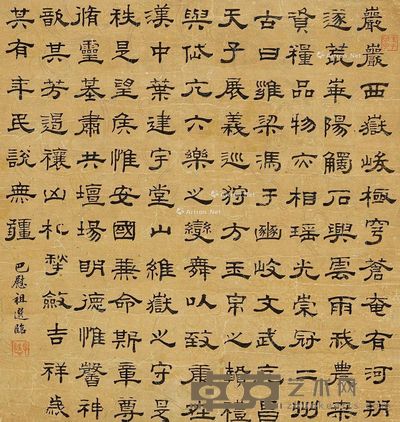 巖巖西嶽峻極穹蒼奄有河朔
遂荒崋陽觸石興雲雨我農桑
資糧品物亦相瑤光崇冠二州
古曰雍梁馮于豳岐文武克昌
天子展義巡狩方玉帛之贄禮
與岱亢六樂之變舞以致康在
漢中葉建宇堂山維嶽之守是
秩是望侯惟安國兼命斯章尊
脩靈基肅共壇場明德惟馨神
歆其芳遏禳凶札揫斂吉祥歲
其有年民說無疆
巴慰祖選臨